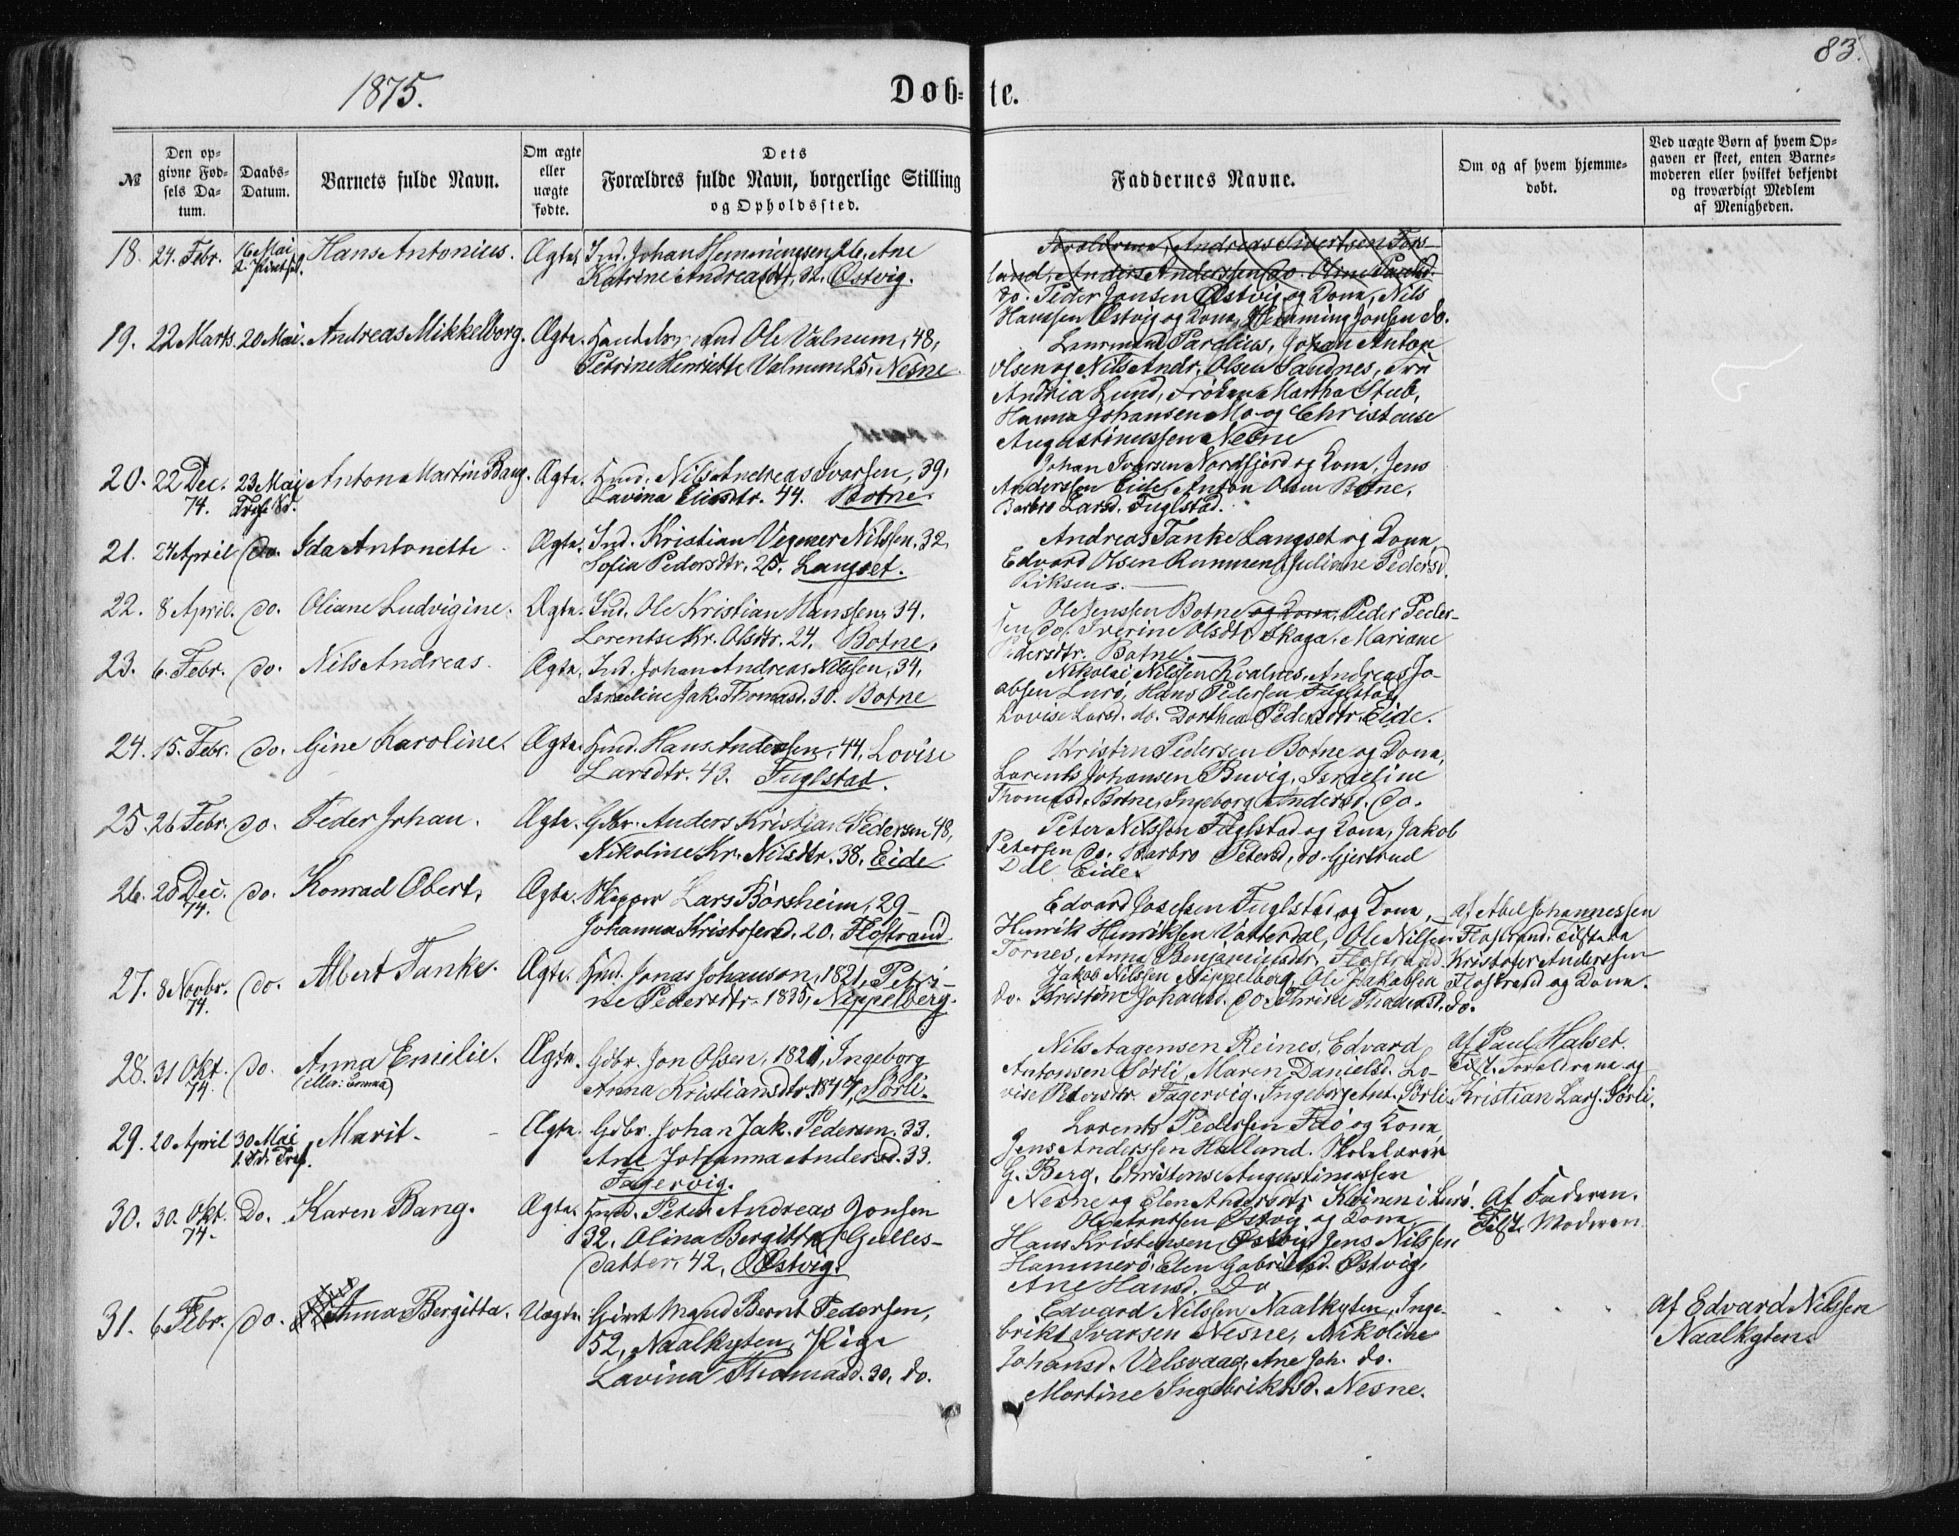 1875.
Døb-te.
83.
№
Den opgivne Fødsels Datum.
Daabs-Datum.
Barnets fulde Navn.
Om ægte eller uægte fødte.
Dets Forældres fulde Navn, borgerlige Stilling og Opholdssted.
Faddernes Navne.
Om og af hvem hjemmedøbt.
Ved uægte Børn af hvem Opgaven er skeet, enten Barnemoderen eller hvilket bekjendt og troværdigt Medlem af Menigheden.
18. 24. Febr. 16 Mai Hans Antonius. Ægte Ind. Johan Hemmingsen 26. Ane
Katrine Andreasdtr. 32. Østvig.
Forældrene, Andreas Sivertsen Fors-
land, Anders Anderssen do. Paulsd.
do. Peder Jonsen Østvig og Kona, Nils
Hanssen Østvig og Kona, Hemming Jonsen do.
19. 22 Marts. 20 Mai. Andreas Mikkelborg. Ægte. Handelsmand Ole Valnum, 48,
Petrine Henriette Valnum 25, Nesne
Lensmand Parelius, Johan Anton
Olsen og Nils Andr. Olsen Sandnes, Fru
Andrea Lund, Frøken Martha Stub,
Hanna Johansen Mo og Christense
Augustinussen Nesne
20. 22 Dec. 74. 23 Mai Anton Martin Bang. Ægte. Hmd. Nils Andreas Ivarsen, 39,
Lavina Eliasdtr. 44. Botne.
Johan Ivarsen Nordfjord og Kona, Jens
Anderssen Eide, Anton Olsen Botne,
Barbro Larsd. Fuglstad.
21. 24 April do. Ida Antonette Ægte. Ind. Kristian Vegener Nilssen. 32,
Sofia Pedersdtr. 25. Langset.
Andreas Tanke Langset og Kona
Edvard Olsen Juliane Pedersd.
22. 8 April. do. Oliane Ludvigine. Ægte. Ind. Ole Kristian Hanssen, 34.
Lorentse Kr. Olsdtr. 24. Botne.
Ole Jenssen Botne og Kona, Peder Peder-
sen do. Iverine Olsdtr. Skaga. Mariane
Pedersdtr. Botne.
23. 6. Febr. do. Nils Andreas. Ægte. Ind. Johan Andreas Nilssen, 34,
Israeline Jak. Thomasd. 30. Botne
Nikolai Nilssen Kvalnes, Andreas Ja-
kobsen Lurø, Hans Pedersen Fuglstad,
Lovise Larsd. do. Dorthea Pedersdtr. Eide.
24. 15. Febr. do. Gine Karoline. Ægte. Hmd. Hans Anderssen, 44, Lovise
Larsdtr. 43. Fuglstad.
Kristen Pedersen Botne og Kona,
Lorents Johansen Buvig, Israeline
Thomasd. Botne, Ingeborg Andersd. do.
25. 26 Febr. do. Peder Johan. Ægte. Gdbr. Anders Kristian Pedersen 48,
Nikoline Kr. Nilsdtr. 38. Eide
Peter Nilssen Fuglstad og Kona, Jakob
Petersen do. Barbro Petersd. do. Gjertrud
Eide.
26. 20 Dec. 74. do. Konrad Obert. Ægte. Skipper Lars Børsheim, 29
Johanna Kristofersd. 20. Flostrand
Edvard Josefsen Fuglstad og Kona,
Henrik Henriksen Vatterdal, Ole Nilssen
Tornes, Anna Benjaminsdtr. Flostrand
af Abel Johannessen
Flostrand. Tilstede
Kristofer Anderssen
Flostrand og Kona.
27. 8 Novbr. 74. do. Albert Tanke. Ægte. Hmd. Jonas Johanson, 1821, Petri-
ne Pedersdtr. 1835, Neppelberg.
Jakob Nilssen Neppelberg, Ole Jakobsen
do. Kristine Johansd. do Thrine Thomasd. do.
28. 31 Okt. 74. do. Anna Emilie. (eller: Emma) Ægte. Gdbr. Jon Olsen, 1821, Ingeborg
Anna Kristiansdtr. 1847, Sørli.
Nils Aagensen Reines, Edvard
Antonsen Sørli, Maren Danielsd. Lo-
vise Petersdtr. Fagervig. Ingeborg Ant. Sørli
af Paul Halset.
Tilst. Forældrene og
Kristian Lars. Sørli.
29. 20 April 30 Mai Marit. Ægte. Gdbr. Johan Jak. Pedersen. 33.
Ane Johanna Andersd. 33.
Fagervig.
Lorents Pedersen Flø og Kona
Jens Anderssen Halland. Skolelærer
G. Berg, Christense Augustinussen
Nesne og Elen Andersdtr. Kvinen i Lurø.
30. 30. Okt. 74. Do. Karen Bang. Ægte. Hmd. Peter Andreas Jonsen
32, Olina Bergitta Gulles-
datter, 42, Østvig.
Ole Arntsen Østvig og Kona
Hans Kristensen Østvig, Jens Nilssen
Hammerø, Elen Gabrielsd. Østvig,
Ane Hansd. Do
Af Faderen.
Tilst. Moderen
31. 6 Febr. do. Anna Bergitta. Uægte. Givt Mand Bernt Pedersen,
52, Naalkyten, Pige
Lavina Thomasd. 30, do.
Edvard Nilssen Naalkyten, Inge-
brikt Ivarsen Nesne, Nikoline
Johansd. Velsvaag, Ane Joh. do.
Martine Ingebriktsd. Nesne.
af Edvard Nilssen
Naalkyten.